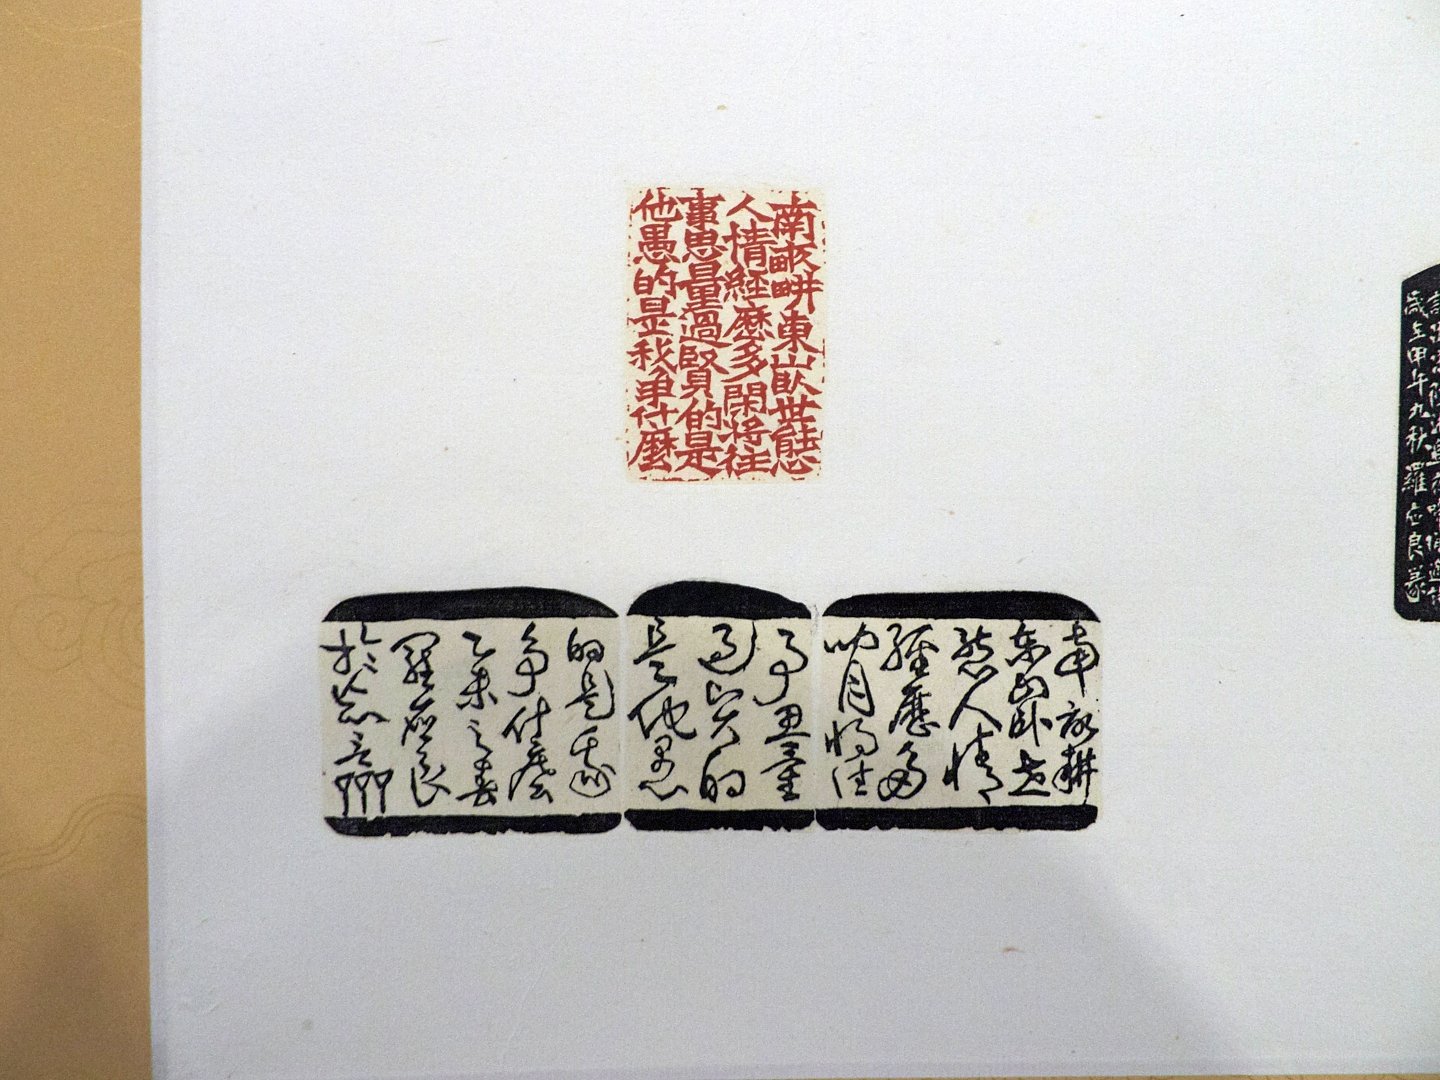 南畝畊東山臥世態
人情經歷多閒將往
事思量過賢的是
他愚的是我爭什麼
南畝耕
東山卧世
態人情
經歷多
閒將往
事思量
過賢的
是他愚
的是我
爭什麼
乙未之春
羅應良
於
歲在甲午九秋羅應良篆